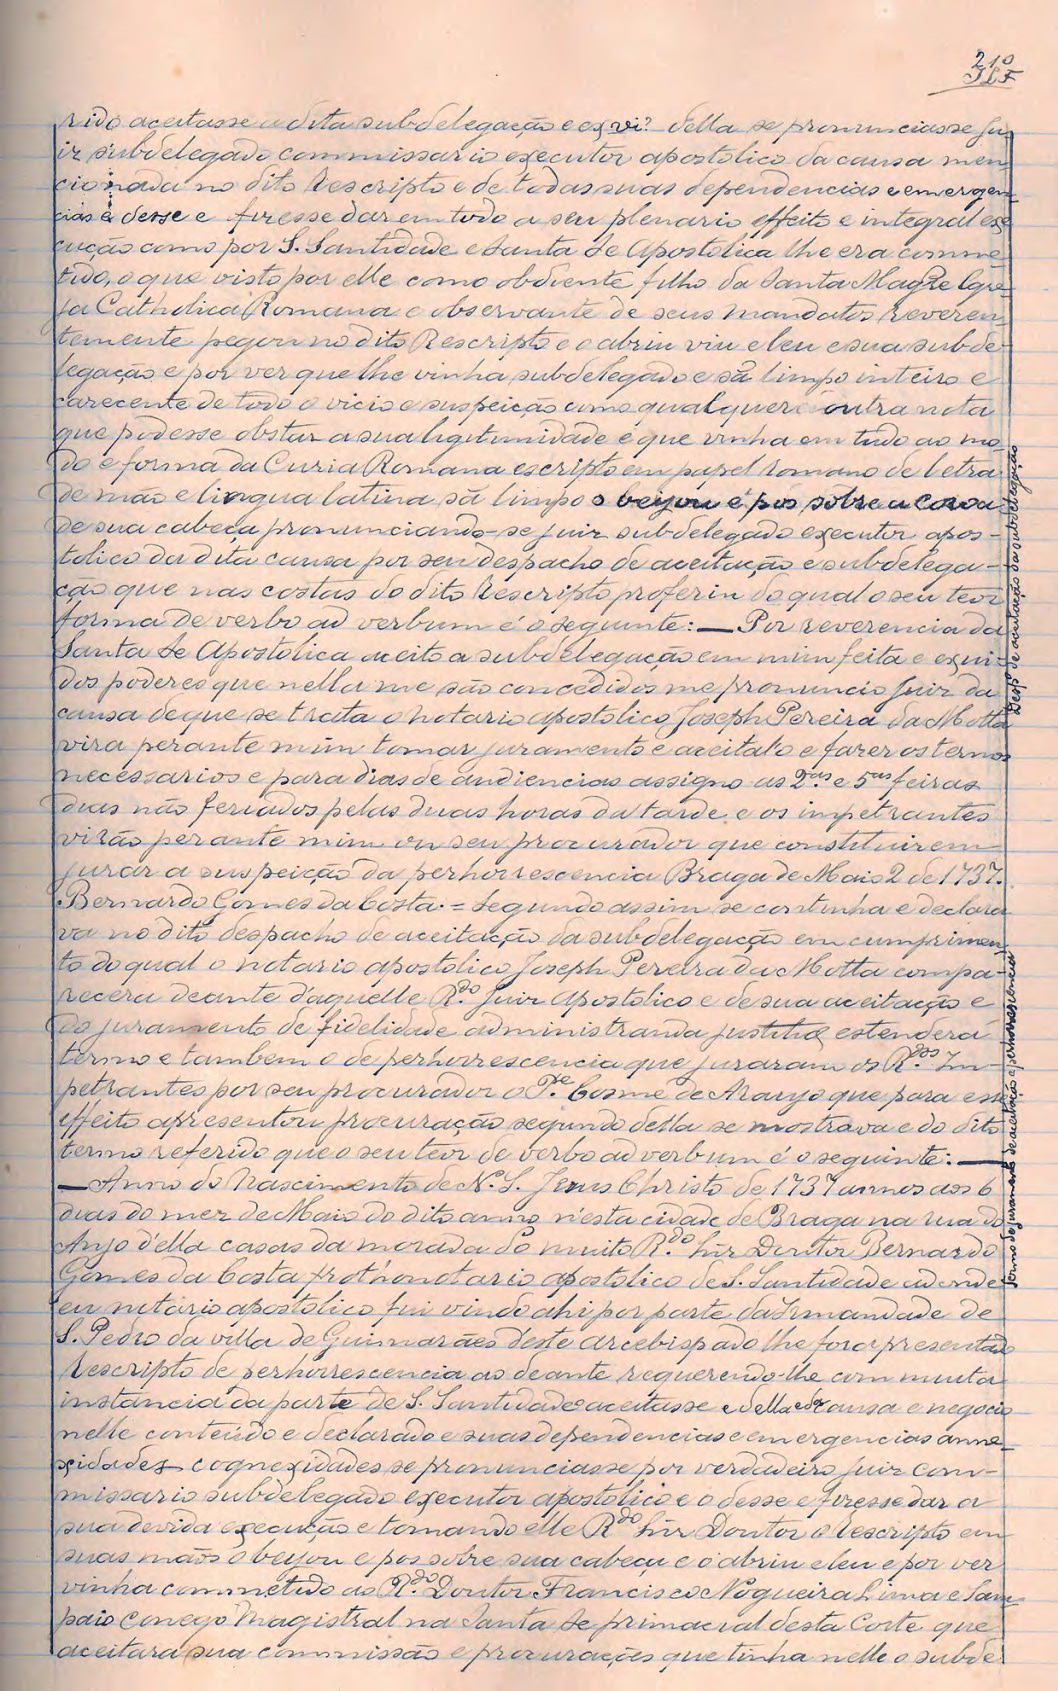 210
rido aceitasse a dita subdelegação e ex vi? della se pronunciasse Ju
iz subdelegado commissario executor apostolico da causa men
cionada no dito Rescripto e de todas suas dependencias e emergen
cias e desse e fizesse dar em todo a seu plenario effeito e integral exe
cução como por S. Santidade e Santa Se Apostolica lhe era comme
tido, o que visto por elle como obdiente filho da Santa Madre Igre
ja Catholica Romana e observante de seus mandatos reveren
temente pegou no dito Rescripto e o abriu viu e leu e sua subde
legação e por ver que lhe vinha subdelegado e sã limpo inteiro e
carecente de todo o vicio e suspeição como qualquer outra nota
que podesse obstar a sua legitimidade e que vinha em tudo ao mo
do e forma da Curia Romana escripto em papel romano de letra
de mão e lingua latina sã limpo o beijou e pôs sobre a coroa
de sua cabeça pronunciando-se juiz subdelegado executor apos-
tolico da dita causa por seu despacho de aceitação e subdelega-
ção que nas costas do dito Rescripto proferiu do qual o seu teor
forma de verbo ad verbum é o seguinte: — Por reverencia da
Santa Se Apostolica aceito a subdelegação em mim feita e ex vi
dos poderes que nella me são concedidos me pronuncio Juiz da
causa de que se trata o notario apostolico Joseph Pereira da Motta
vira perante mim tomar juramento e aceital'o e fazer os termos
necessarios e para dias de audiencias assigno as 2.as e 5.as feiras
dias não feriados pelas duas horas da tarde e os impetrantes
virão perante mim ou seu procurador que constituirem
jurar a suspeição da perhorrescencia Braga de Maio 2 de 1737.
Bernardo Gomes da Costa. = Segundo assim se continha e declara
va no dito despacho de aceitação da subdelegacção em cumprimen
to do qual o notario apostolico Joseph Pereira da Motta compa-
recera deante d'aquelle R.do Juiz Apostolico e de sua aceitação e
do juramento de fidelidade administranda justitiæ estendera
termo e tambem o de perhorrescencia que juraram os R.dos Im-
petrantes por seu procurador o P.e Cosme de Araujo que para esse
effeito apresentou procuração segundo della se mostrava e do dito
termo referido que o seu teor de verbo ad verbum é o seguinte: —
— Anno do Nascimento de N. S. Jesus Christo de 1737 annos aos 6
dias do mez de Maio do dito anno n'esta cidade de Braga na rua do
Anjo d'ella casas da morada do muito R.do Sñr Doutor Bernardo
Gomes da Costa prothonotario apostolico de S. Santidade adonde
eu notario apostolico fui vindo ahi por parte da Irmandade de
S. Pedro da villa de Guimarães deste arcebispado lhe for apresentado
Rescripto de perhorrescencia ao deante requerendo-lhe com muita
instancia da parte de S. Santidade aceitasse e della e da causa e negocio
nelle conteúdo e declarado e suas dependencias e emergencias anne-
xidades cognexidades se pronunciasse por verdadeiro juiz com-
missario subdelegado executor apostolico e o desse e fizesse dar a
sua devida execução e tomando elle R.do Sñr Doutor o Rescripto em
suas mãos o beijou e pos sobre sua cabeça e o abriu e leu e por ver
vinha commetido ao R.do Doutor Francisco Nogueira Lima e Sam
paio conego Magistral na Santa Se primacial desta Corte que
aceitara sua commissão e procurações que tinha nelle o subde
Desp.o de aceitação da subdelegação
Termo de juramento de aceitação e perhorrescencia